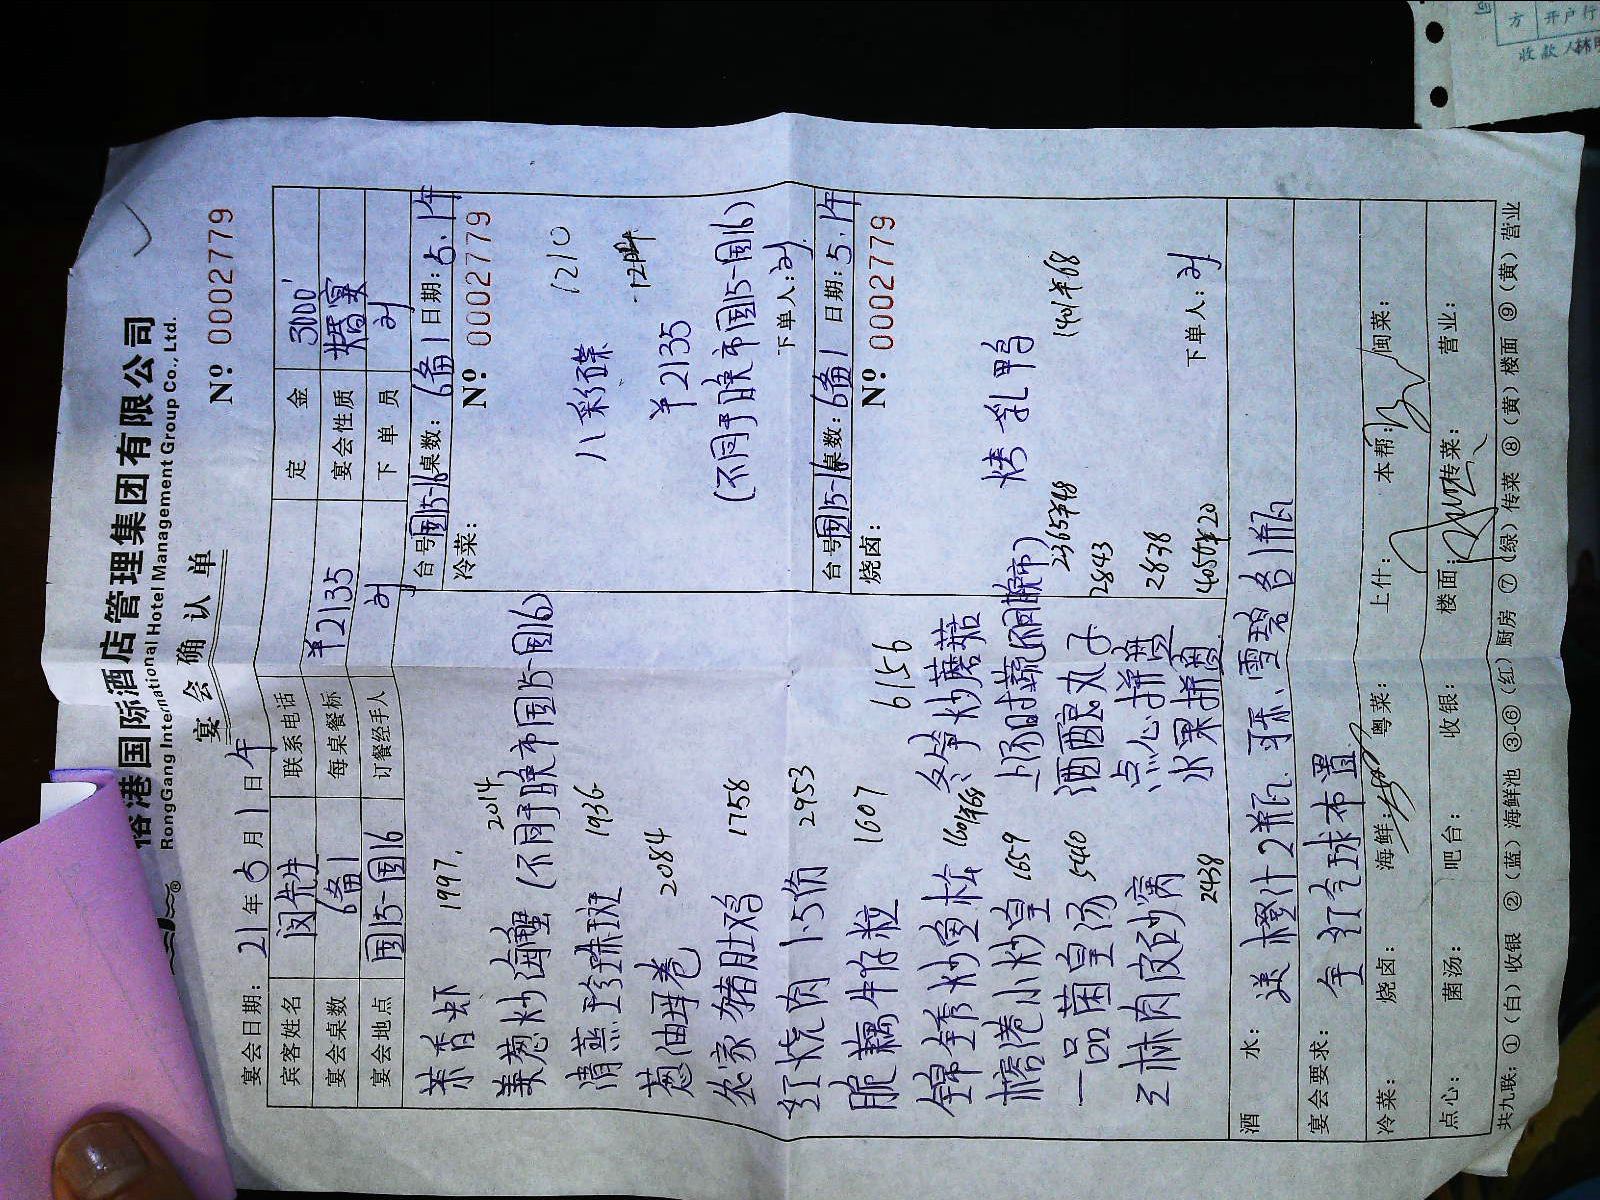 榕港国际酒店管理集团有限公司
RongGang International Hotel Management Group Co., Ltd.
宴会确认单
Nº 0002779
宴会日期：21年5月1日午
宾客姓名 闵先生 联系电话 定金 3000
宴会桌数 6备1 每桌餐标 ¥2135 宴会性质 婚宴
宴会地点 国15-国16 订餐经手人 刘 下单员 刘
茶香虾 1997
姜葱炒海蟹 2014 (不同于晚市国15-国16)
清蒸珍珠斑 1936
葱油母卷 2084
农家猪肚鸡 1758
红烧肉 1.5份 2953
脆藕牛仔粒 1607
6156
锦绣炒鱼松 160/¥68
榕港小炒皇 1659
一品菌皇汤 5410
肉皮砂窝 2438
笋炒蘑菇
上汤时蔬(不同晚市)
2365¥48
酒酿丸子 2843
点心拼盘 2838
水果拼盘 4050¥20
台号：国15-16 桌数：6备1 日期：5.1午
冷菜： Nº 0002779
1210
八彩碟
¥2135
(不同于晚市国15-国16)
下单人：刘
台号：国15-16 桌数：6备1 日期：5.1午
烧卤： Nº 0002779
烤乳鸭
1401¥68
下单人：刘
酒水： 送橙汁2瓶、可乐、雪碧各1瓶
宴会要求： 气球布置
冷菜： 烧卤： 海鲜： 粤菜： 上什： 本帮： 闽菜：
点心： 菌汤： 吧台： 收银： 楼面： 传菜： 营业：
共九联：①（白）收银 ②（蓝）海鲜池 ③-⑥（红）厨房 ⑦（绿）传菜 ⑧（黄）楼面 ⑨（黄）营业
方 开户行
收款人